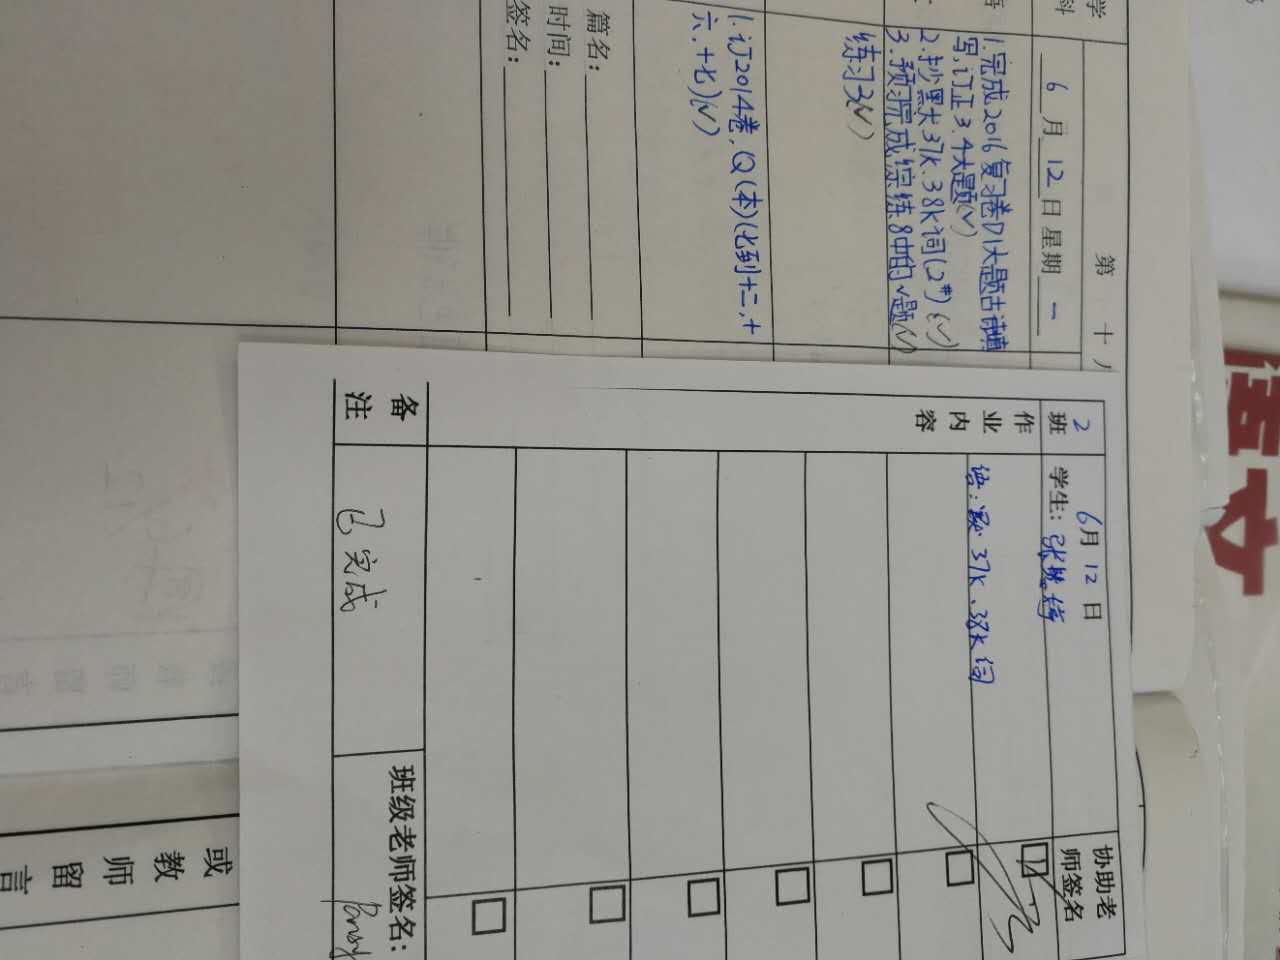 学
科
第 十 八
6 月 12 日 星期 一
1.完成2016复习卷内大题古诗填
写,订正3.4大题(√)
2.抄黑大37K.38K词(2#)(√)
3.预习完成综练8中的√题(√)
练习3(√)
1.订2014卷,Q(本)(七到十二,十
六.十七)(√)
篇名:
时间:
签名:
语文
2 班
6月 12 日
学生:
协助老
师签名
作 业 内 容
语: 37K.38K词
备注
已完成
班级老师签名:
或 教 师 留 言